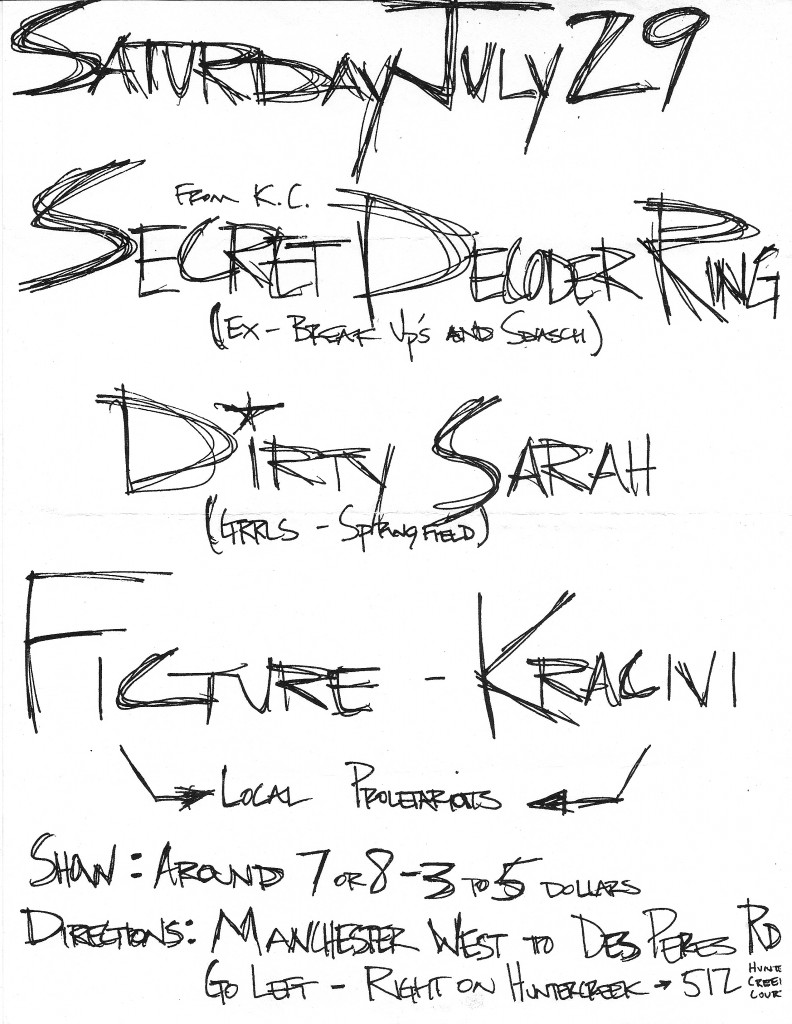 SATURDAY JULY 29
FROM K.C.
SECRET DECODER RING
(EX - BREAK UP'S AND SQUASCH)
DIRTY SARAH
(GRRLS - SPRINGFIELD)
FICTURE - KRACIVI
LOCAL PROLETARIOTS
SHOW: AROUND 7 OR 8 - 3 TO 5 DOLLARS
DIRECTIONS: MANCHESTER WEST TO DES PERES RD
GO LEFT - RIGHT ON HUNTERCREEK → 512 HUNTE
CREEI
COUR